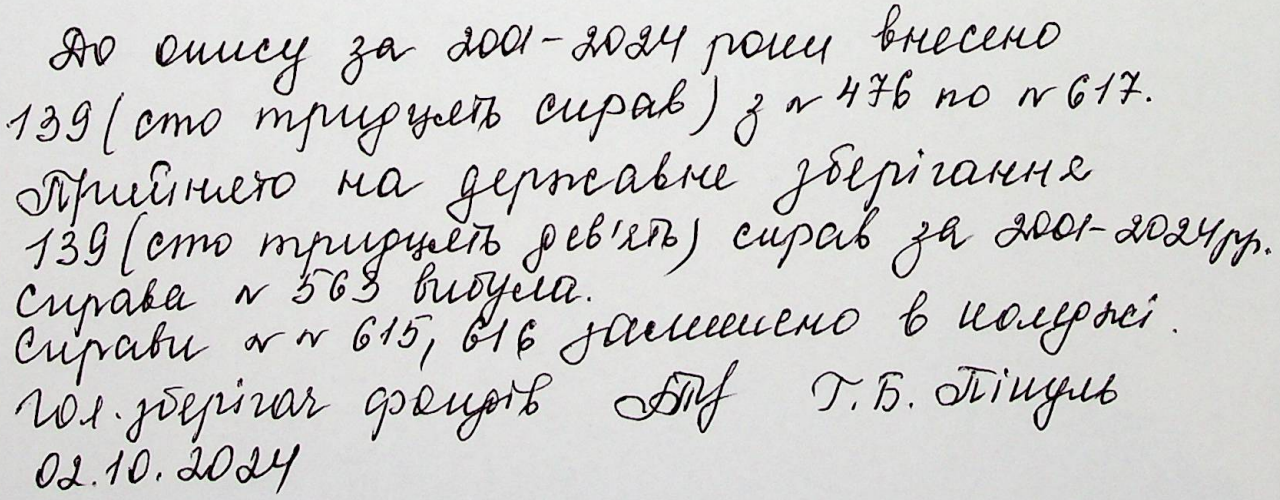 До опису за 2001-2024 роки внесено
139 (сто тридцять справ) з № 476 по № 617.
Прийнято на державне зберігання
139 (сто тридцять дев'ять) справ за 2001-2024 рр.
Справа № 563 вибула.
Справи №№ 615, 616 залишено в коледжі.
Гол. зберігач фондів Г.Б. Пікуль
02.10.2024